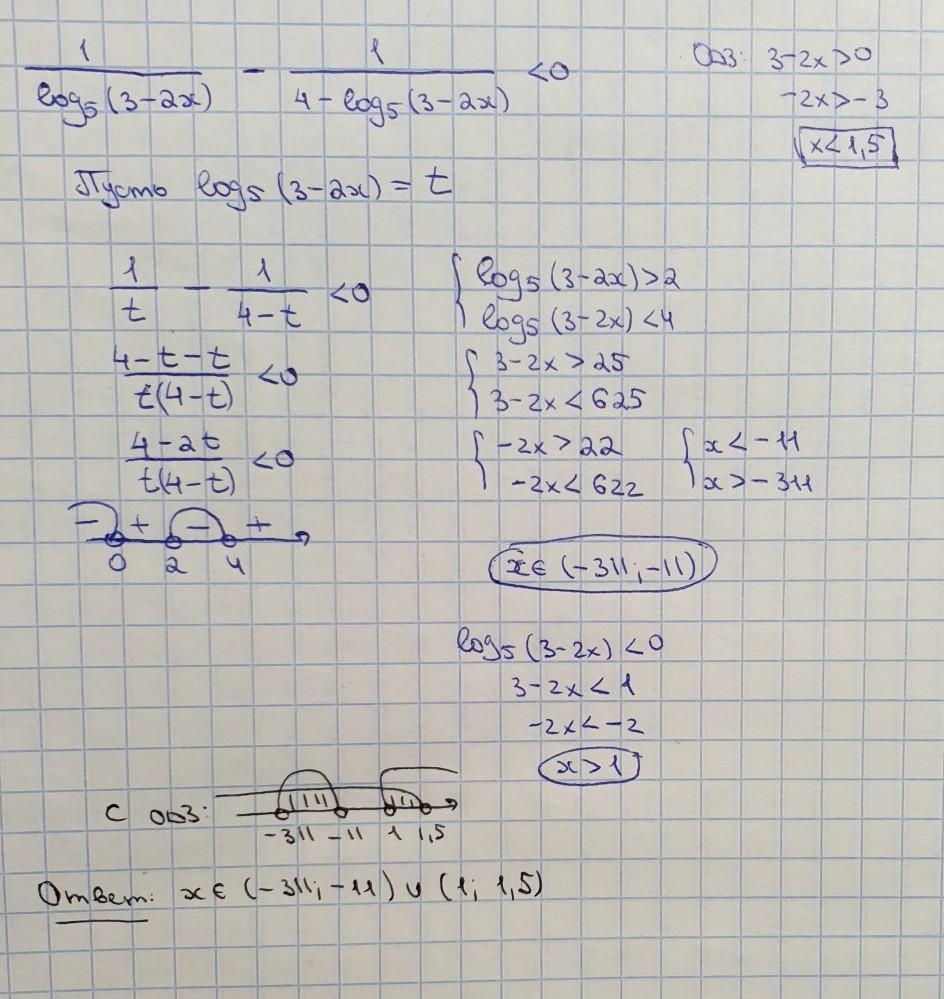 1/log₅(3-2x) - 1/(4-log₅(3-2x)) <0
ОДЗ: 3-2x>0
-2x>-3
x<1,5
Пусть log₅(3-2x)=t
1/t - 1/(4-t) <0
(4-t-t)/(t(4-t)) <0
(4-2t)/(t(4-t)) <0
- + - +
0 2 4
{ log₅(3-2x)>2
log₅(3-2x)<4
{ 3-2x>25
3-2x<625
{ -2x>22 { x<-11
-2x<622 x>-311
x∈(-311;-11)
log₅(3-2x)<0
3-2x<1
-2x<-2
x>1
С ОДЗ:
-311 -11 1 1,5
Ответ: x∈(-311;-11)∪(1; 1,5)